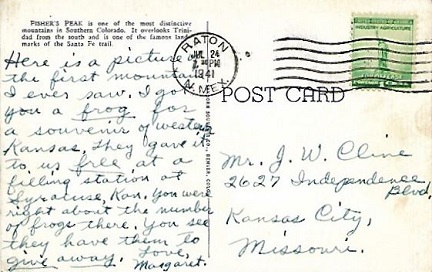 FISHER'S PEAK is one of the most distinctive
mountains in Southern Colorado. It overlooks Trini-
dad from the south and is one of the famous land
marks of the Santa Fe trail.
Here is a picture of
the first mountain
I ever saw. I got
you a frog for
a souvenir of western
Kansas. They gave it
to us free at a
filling station at
Syracuse, Kan. You were
right about the number
of frogs there. You see
they have them to
give away. Love,
Margaret.
RATON
JUL 24
PM
1941
N. MEX.
UNITED STATES OF AMERICA
INDUSTRY AGRICULTURE
POST CARD
Mr. J. W. Cline
2627 Independence
Blvd.
Kansas City,
Missouri.